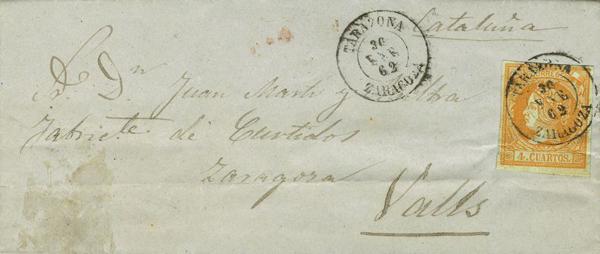 Cataluña
TARAZONA
30
ENE
62
ZARAGOZA
TARAZONA
30
ENE
62
ZARAGOZA
4. CUARTOS.
Sr. Dn Juan Martí y
Fabricte de Curtidos
Zaragora
Valls